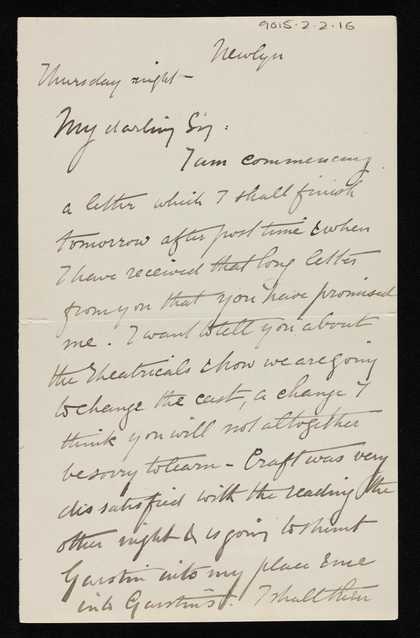 9015-2-2-16
Newlyn
Thursday night -
My darling Sig:
I am commencing
a letter which I shall finish
tomorrow after post time & when
I have received that long letter
from you that you have promised
me. I want to tell you about
the Theatricals & how we are going
to change the cast, a change I
think you will not altogether
be sorry to learn - Craft was very
dissatisfied with the reading the
other night & is going to shunt
Garstin into my place & me
into Garstin's. I shall then